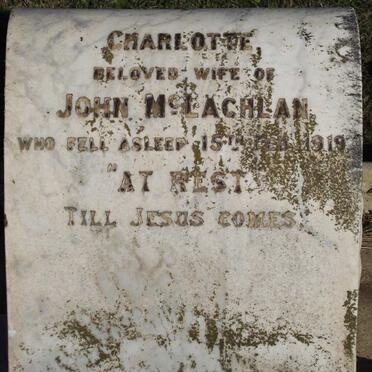 CHARLOTTE,
BELOVED WIFE OF
JOHN McLACHLAN
WHO FELL ASLEEP 15TH FEB. 1919
"AT REST."
TILL JESUS COMES.